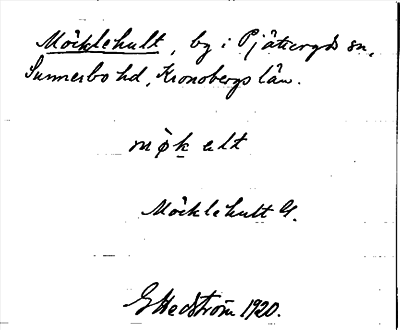 Möcklehult, by i Pjätteryds sn,
Sunnerbo hd, Kronobergs län.
Möcklehult G.
G Hedström 1920.